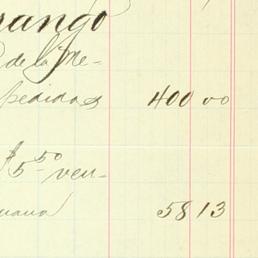 rango
de la Me-
pedidos 400 00
$5.50 ven-
uana 58 13